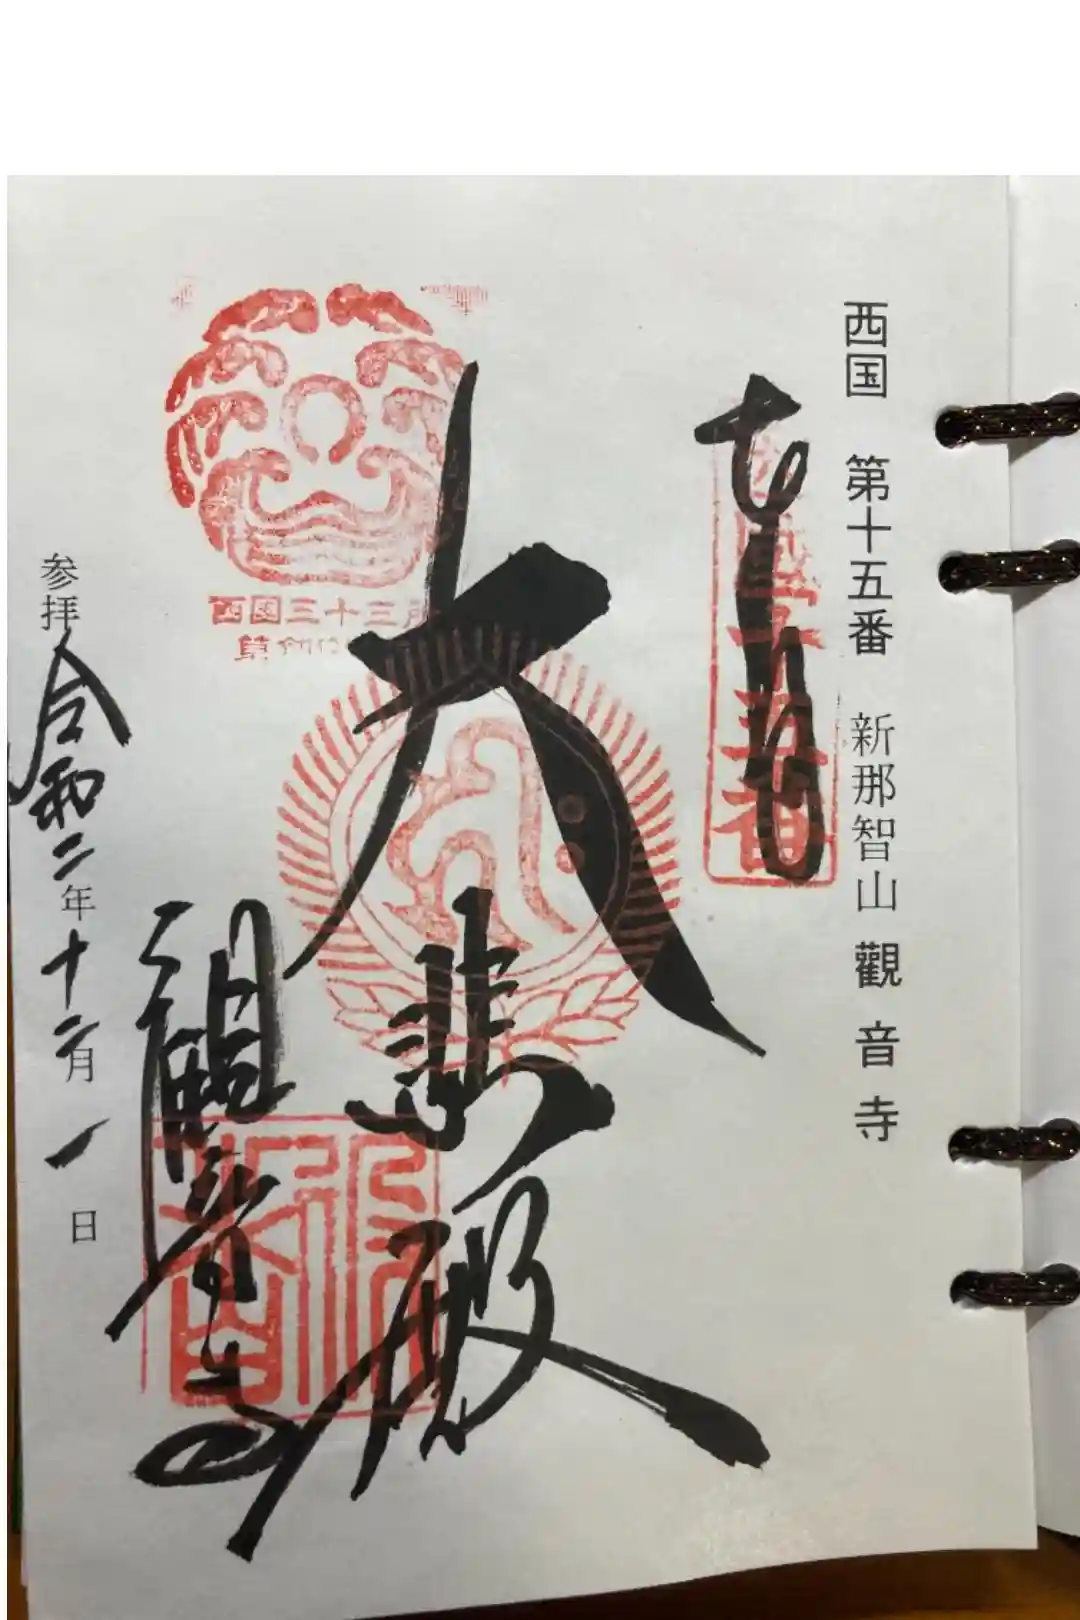 西国 第十五番 新那智山 觀音寺
奉拝
西国十五番
大悲殿
西国三十三所
草創
観音寺
参拝 令和二年十二月一日